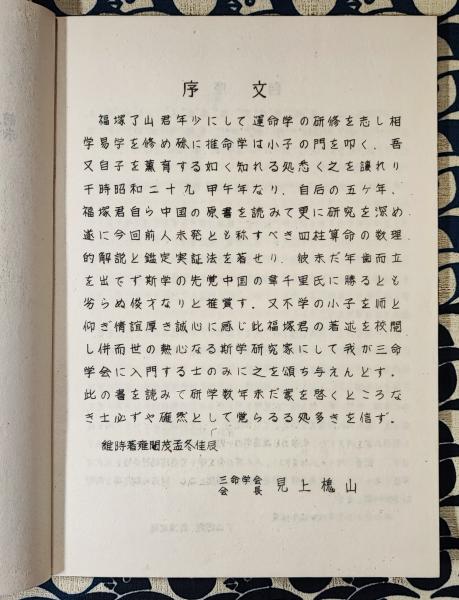 序文
福塚了山君年少にして運命学の研修を志し相
学易学を修め殊に推命学は小子の門を叩く、吾
又自子を薫育する如く知れる処悉く之を譲れり
干時昭和二十九 甲午年なり、自后の五ヶ年、
福塚君自ら中国の原書を読みて更に研究を深め
遂に今回前人未発とも称すべき四柱算命の数理
的解説と鑑定実証法を著せり、彼未だ年歯而立
を出でず斯学の先覚中国の韋千里氏に勝るとも
劣らぬ俊才なりと推賞す。又不学の小子を師と
仰ぎ情誼厚き誠心に感じ此福塚君の著述を校閲
し併而世の熱心なる斯学研究家にして我が三命
学会に入門する士のみに之を頒ち与えんとす。
此の書を読みて研学数年未だ蒙を啓くところな
き士必ずや確然として覚らるる処多きを信ず。
維時著雍閹茂孟冬佳辰
三命学会
会長 見上 山